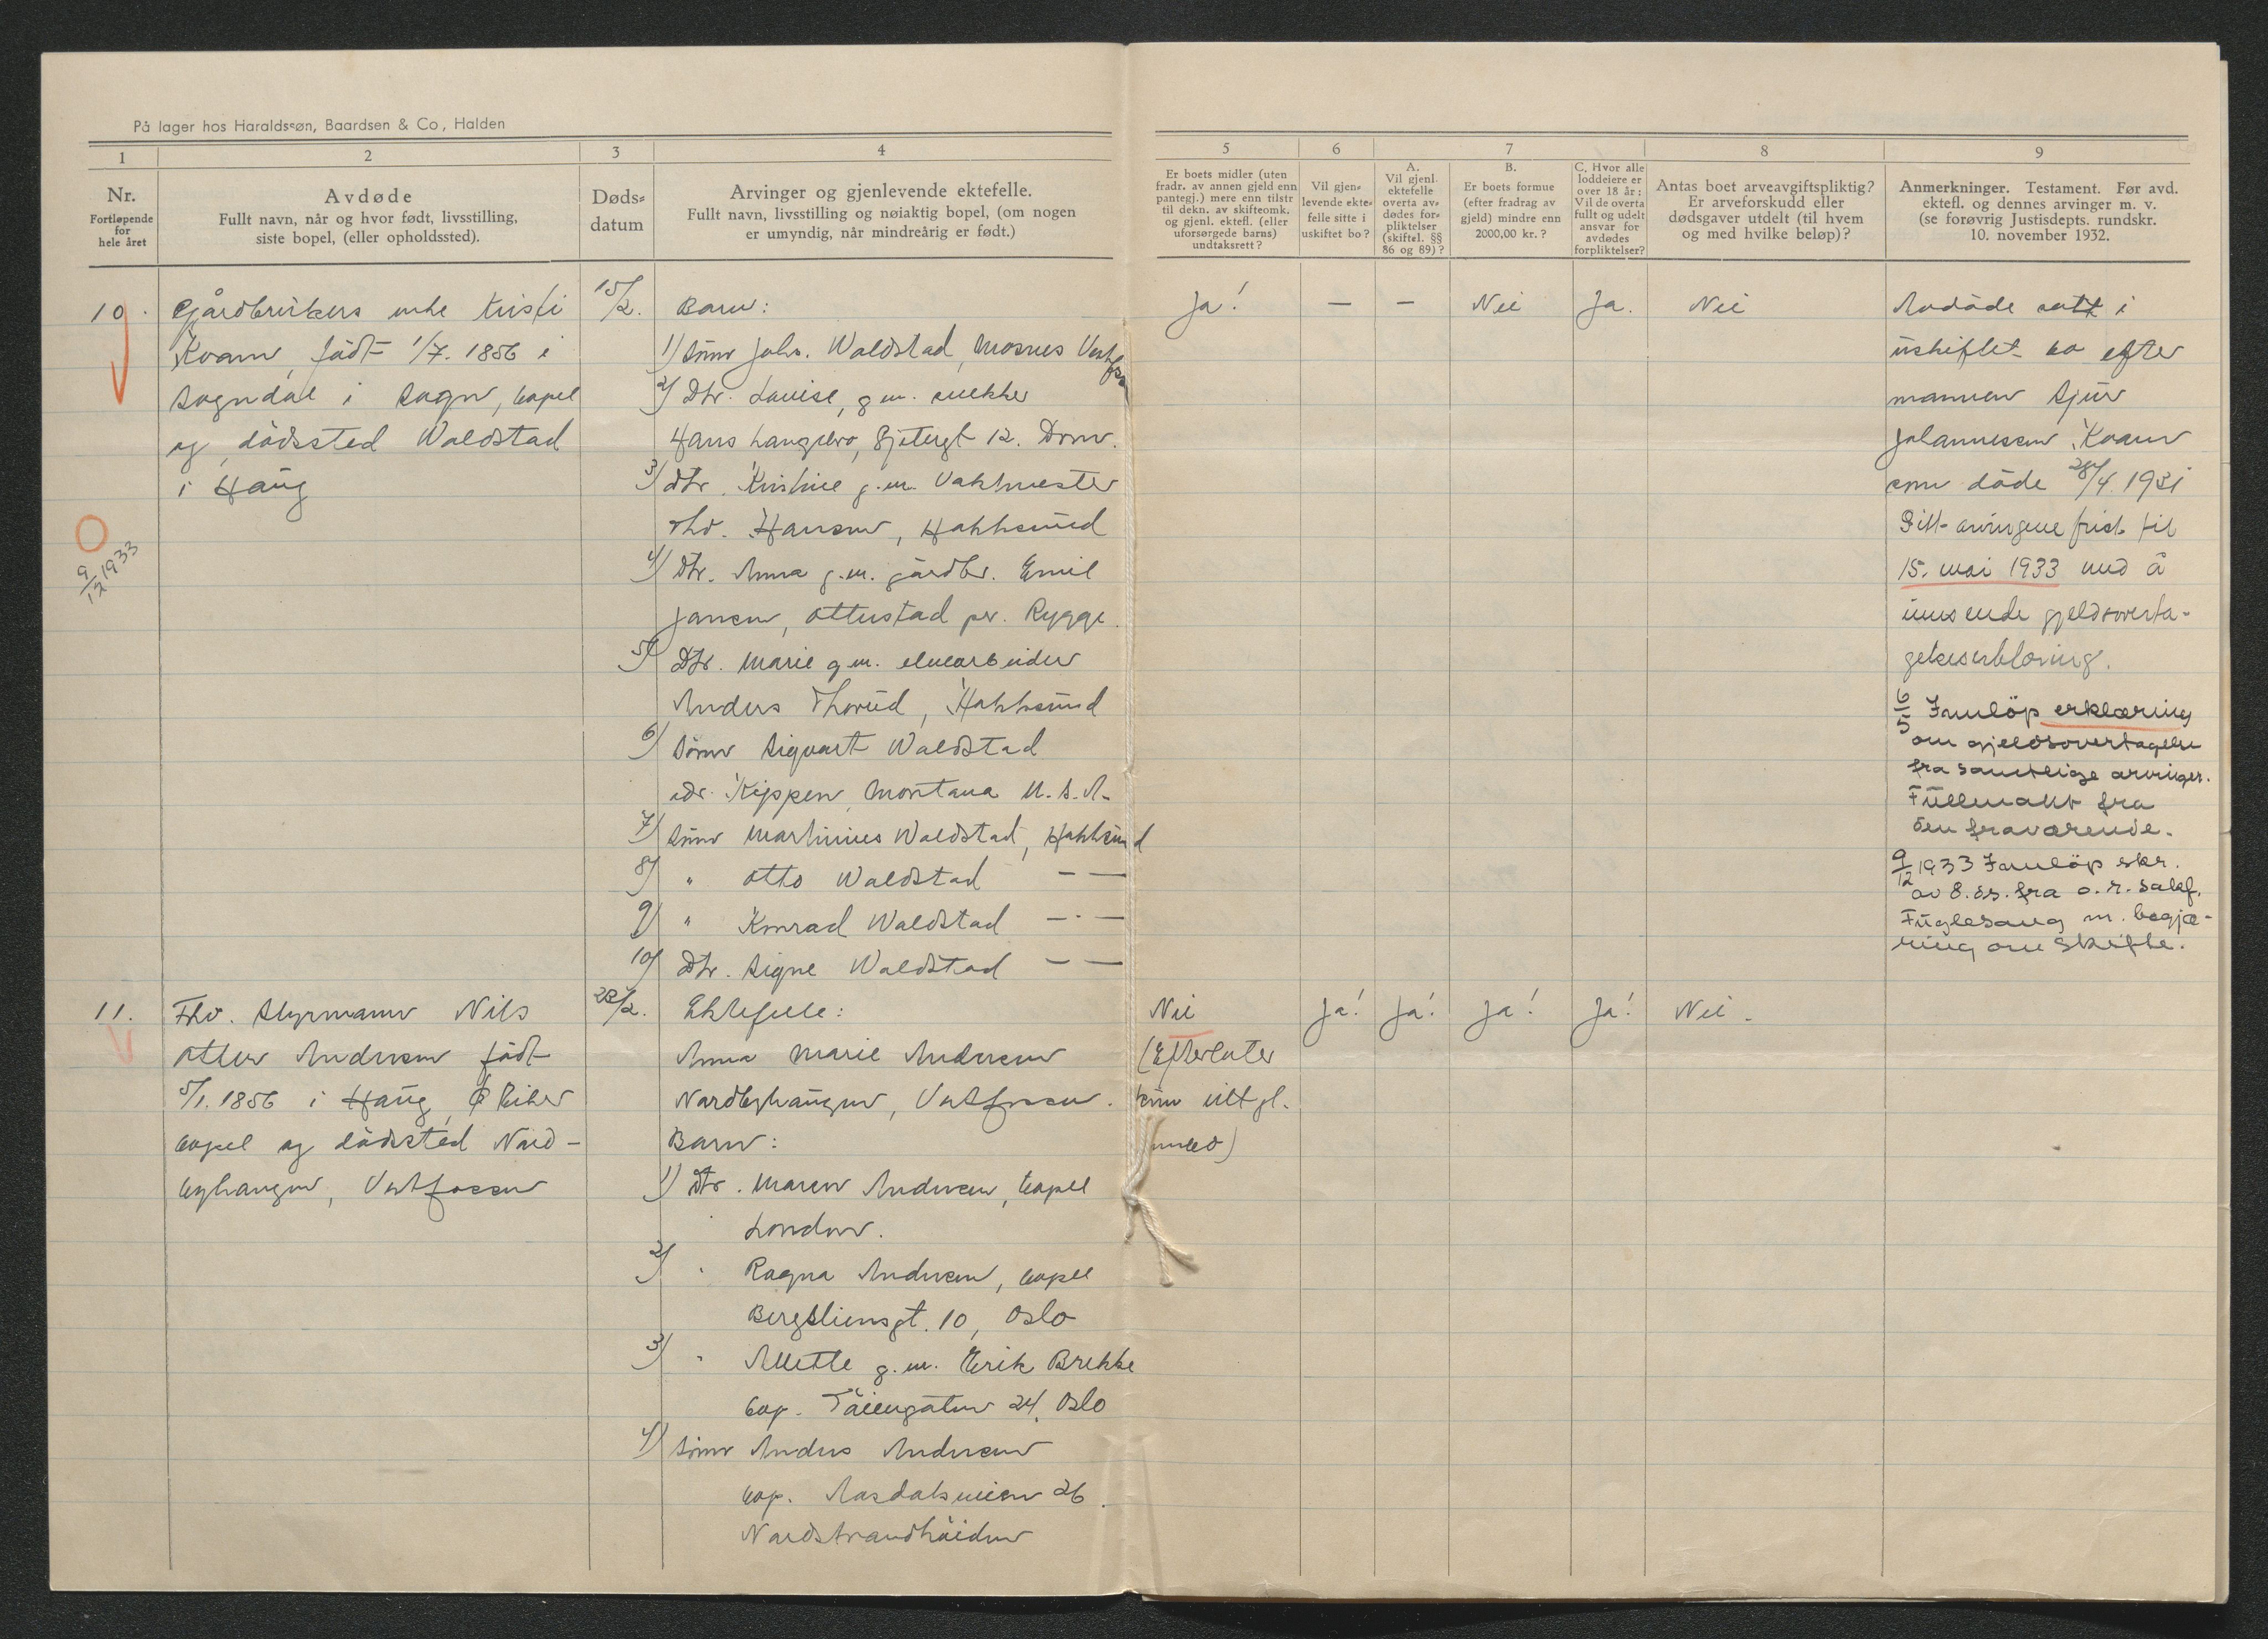 På lager hos Haraldssøn, Baardsen & Co, Halden
1 2 3 4 5 6 7 8 9
Nr.
Fortløpende
for
hele året
Avdøde
Fullt navn, når og hvor født, livsstilling,
siste bopel, (eller opholdssted).
Døds-
datum
Arvinger og gjenlevende ektefelle.
Fullt navn, livsstilling og nøiaktig bopel, (om nogen
er umyndig, når mindreårig er født.)
Er boets midler (uten
fradr. av annen gjeld enn
pantegj.) mere enn tilstr
til dekn. av skifteomk.
og gjenl. ektefl. (eller
uforsørgede barns)
undtaksrett?
Vil gjen-
levende ekte-
felle sitte i
uskiftet bo?
A.
Vil gjenl.
ektefelle
overta av-
dødes for-
pliktelser
(skiftel. §§
86 og 89)?
B.
Er boets formue
(efter fradrag av
gjeld) mindre enn
2000,00 kr.?
C. Hvor alle
loddeiere er
over 18 år:
Vil de overta
fullt og udelt
ansvar for
avdødes
forpliktelser?
Antas boet arveavgiftspliktig?
Er arveforskudd eller
dødsgaver utdelt (til hvem
og med hvilke beløp)?
Anmerkninger. Testament. Før avd.
ektefl. og dennes arvinger m. v.
(se forøvrig Justisdepts. rundskr.
10. november 1932.
10.
Gårdbrukers enke Kristi
Kvam, född 1/7. 1856 i
Sogndal i Sogn, bopel
og dödssted Waldstad
i Haug
9/12 1933
15/2.
Barn:
1) Sönn Johs. Waldstad, Mosnes Vestf
2) Dtr. Louise, g.m. snekker
Hans Langebro, Gjetergt 12. Drmn.
3) Dtr. Kristine g.m. Vaktmester
Thv. Hansen, Hokksund
4) Dtr. Anna g.m. gårdbr. Emil
Jansen, Ottestad pr. Rygge.
5) Dtr. Marie g.m. elvearbeider
Anders Thorud, Hokksund
6) Sönn Sigvart Waldstad
adr. Kippen, Montana U.S.A.
7) Sönn Martinius Waldstad, Hokksund
8) " Otto Waldstad — —
9) " Konrad Waldstad — " —
10) Dtr. Signe Waldstad — —
Ja! — — Nei Ja. Nei
Avdöde satt i
uskiftet bo efter
mannen Sjur
Johannesen Kvam
som döde 28/4. 1931
Gitt arvingene frist til
15. mai 1933 med å
innsende gjeldsoverta-
gelseserklæring.
6/5 Innlöp erklæring
om gjeldsovertagelse
fra samtlige arvinger.
Fullmakt fra
den fraværende.
9/12 1933 Innlöp skr.
av 8. ds. fra o.r. sakf.
Fuglesang m. begjæ-
ring om skifte.
11.
Fhv. Styrmann Nils
Otter Andersen född
5/1. 1856 i Haug, Ø Eiker
bopel og dödssted Nord-
byhaugen, Vestfossen
22/2.
Ektefelle:
Anna Marie Andersen
Nordbyhaugen, Vestfossen.
Barn:
1) Dtr. Maren Andersen, bopel
London.
2) " Ragna Andersen, bopel
Bergsliensgt. 10, Oslo
3) " Allette g.m. Erik Brekke
bop. Töiengaten 24, Oslo
4) Sönn Anders Andersen
bop. Aasdalsveien 26.
Nordstrandhöiden
Nei
(Efterlater
kun litt gl.
innbo)
Ja! Ja! Ja! Ja! Nei.